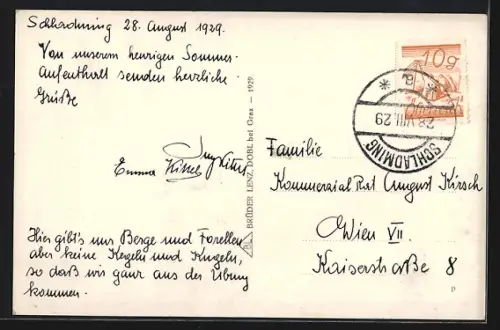 Schladming 28. August 1929.
Von unserem heurigen Sommer-
aufenthalt senden herzliche
Grüße
Emma Kittel
Hier gibt's nur Berge und Forellen
aber keine Kegeln und Kugeln,
so daß wir ganz aus der Übung
kommen.
BRÜDER LENZ, DOBL bei Graz — 1929.
10g
28.VIII.29
SCHLADMING
Familie
Kommerzial Rat August Kirsch
Wien VII.
Kaiserstraße 8